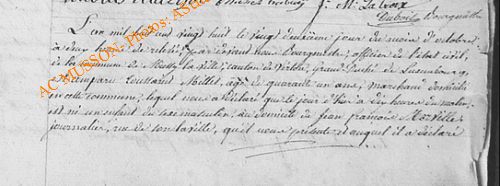 J. M. Lacroix
Dubois Bourgmestre
L'an mil huit cent vingt huit le vingt deuxième jour du mois d'octobre
à deux heures de relevée, par devant nous Bourgmestre, officier de l'état civil,
de la commune de Mussy la ville, canton de Virton, Grand Duché de Luxembourg,
est comparu Toussaint Millet, âgé de quarante un ans, marchand domicilié
en cette commune, lequel nous a déclaré que le jour d'hier à dix heures du matin
est né un enfant du sexe masculin, au domicile de Jean François Morville
journalier, rue de ville, qu'il nous présente et auquel il a déclaré
AC-MUSSON- Photos: ASBL